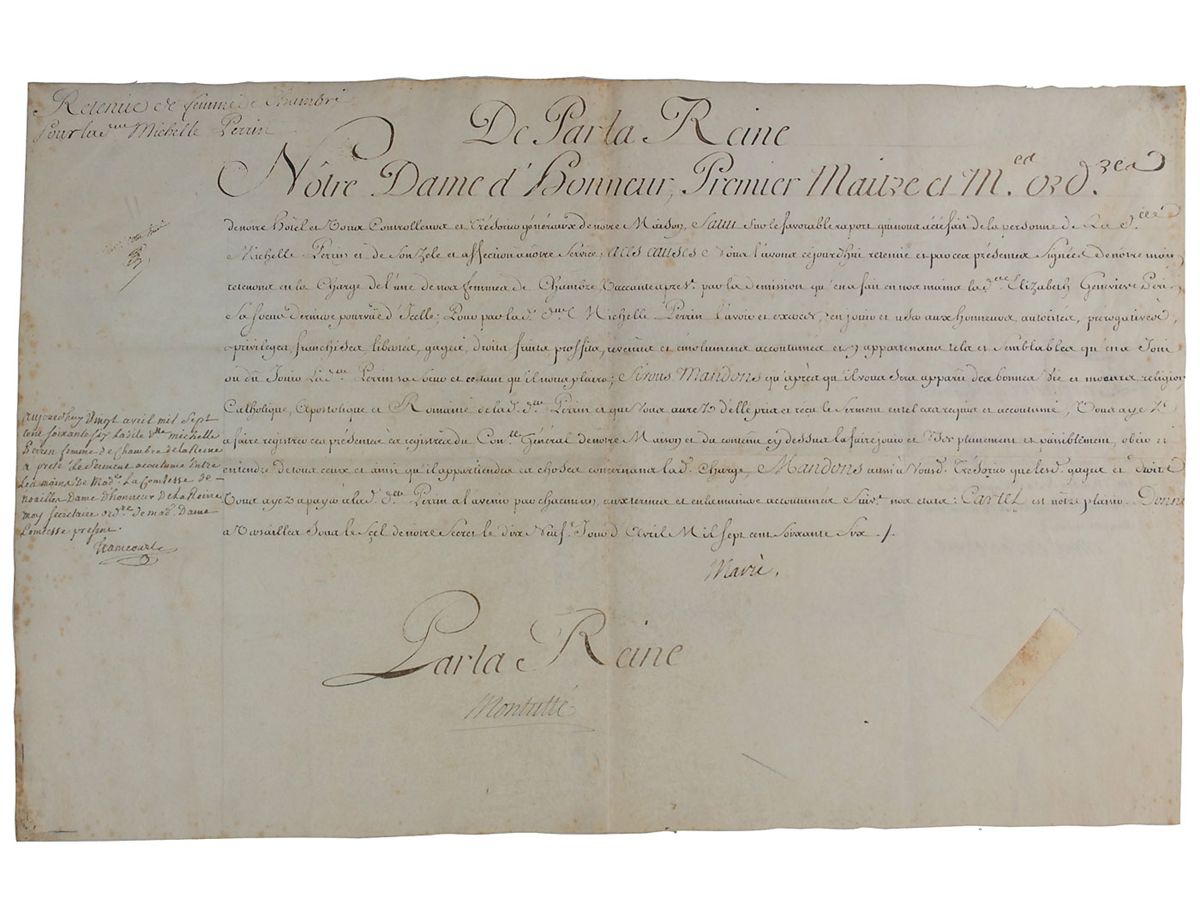 Retenüe de femme de Chambre
Pour la d.lle Michelle Perrin
De Par la Reine
Nôtre Dame d'Honneur, Premier Maitre et M.es ord.res
de notre Hôtel et Vous Controlleurs et Trésoriers généraux de notre Maison, Salut Sur le favorable raport qui nous a été fait de la personne de La D.lle
Michelle Perrin et de Son Zele et affection a notre Service; a Ces causes Nous l'avons cejourd'hui retenüe et par ces présentes Signées de nôtre main
retenons en la Charge de l'une de nos femmes de Chambre, Vaccante apres. par la demission qu'en a fait en nos mains la d.elle Elizabeth Genevieve Peri
Sa soeur derniere pourvüe d'Icelle. Pour par la d. d.lle Michelle Perrin l'avoir et exercer, en jouir et user aux honneurs, autorités, prérogatives,
privileges, franchises, libertés, gages, droits, fruits, proffits, revenus et émolumens accoutumés et y appartenans tels et Semblables qu'en a Joui
ou dû Jouir la d.lle Perrin sa Soeur et ce tant qu'il nous plaira; Sivous Mandons qu'après qu'il vous Sera apparu des bonnes Vie et moeurs religion
Catholique, Apostolique et Romaine de la d. d.lle Perrin et que Vous aurez d'elle pris et reçu le Serment en tel cas requis et accoutumé, Vous ayez
a faire registrer ces présentes ès registres du Con.lle Général de notre Maison et du contenu cy dessus la faire jouir et User pleinement et paisiblement, obéir et
entendre de tous ceux et ainsi qu'il appartiendra ès choses concernans lad. Charge. Mandons aussi a Vousd. Trésoriers que lesd. gages et droits
Vous ayez a payer a la d. d.lle Perrin a l'avenir par chacun an, aux termes et en la maniere accoutumée Suiv.t nos etats: Car tel est nôtre plaisir. Donné
a Versailles Sous le Scel de notre Secret le dix Neuf.e Jour d'Avril Mil Sept cent Soixante Six ./.
Marie.
Par la Reine
aujourdhuy Vingt avril mil Sept
cent soixante six ladite d.lle michelle
Perrin femme de Chambre de la Reine
a preté le Serment accoutumé Entre
Les mains de Mad.e La Comtesse de
noailles Dame d'honneur de La Reine
moy secretaire ord.re de mad. Dame
Comtesse present.